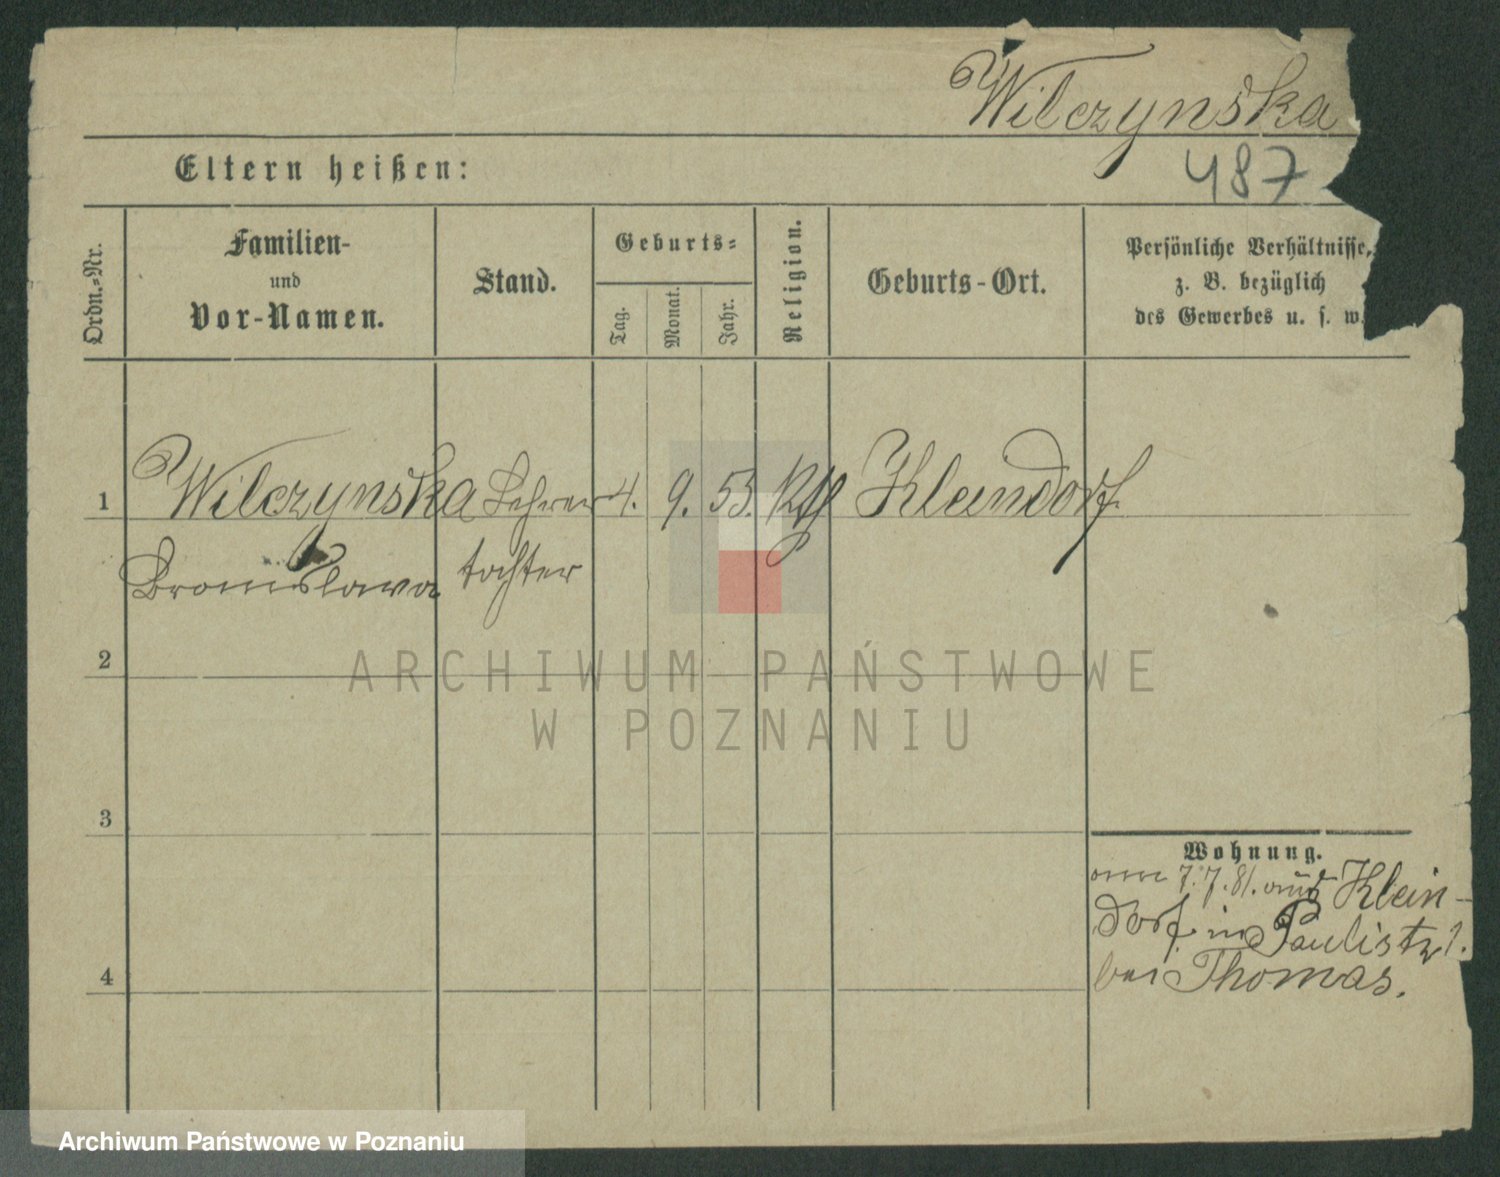 Wilczynska
487
Eltern heißen:
Ordn.-Nr.
Familien-
und
Vor-Namen.
Stand.
Geburts-
Tag.
Monat.
Jahr.
Religion.
Geburts-Ort.
Persönliche Verhältnisse,
z. B. bezüglich
des Gewerbes u. s. w.
1 Wilczynska Lehrer 4. 9. 53. kth Kleindorf
Bronislawa tochter
2
3
4
Wohnung.
7.7.81. aus Klein-
dorf in Paulistr 1.
bei Thomas.
ARCHIWUM PAŃSTWOWE
W POZNANIU
Archiwum Państwowe w Poznaniu